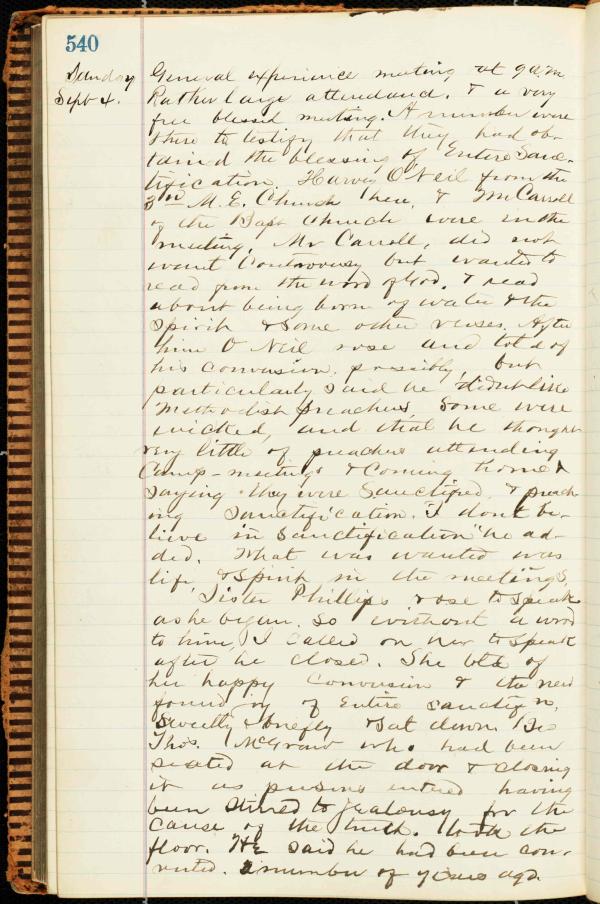 540
Sunday
Sept 4.
General experience meeting at 9 a.m.
Rather large attendance. & a very
free blessed meeting. A number were
there to testify that they had ob-
tained the blessing of Entire Sanc-
tification. Harvey O'Neil from the
3rd M.E. Church here, & Mr Carroll
of the Bapt Church were in the
meeting. Mr Carroll, did not
want Controversy but wanted to
read from the word of God. & read
about being born of water & the
Spirit & Some other verses. After
him O'Neil rose and told of
his conversion, possibly, but
particularly said he didnt like
Methodist preachers, Some were
wicked, and that he thought
very little of preachers attending
Camp-meetings & Coming home &
Saying they were Sanctified, & preach-
ing Sanctification. "I dont be-
lieve in Sanctification" he ad-
ded. What was wanted was
life & Spirit in the meetings,
Sister Phillips rose to Speak
as he began. So without a word
to him, I Called on her to Speak
after he closed. She told of
her happy Conversion & the new
found joy of Entire sanctifn,
Sweetly & briefly & Sat down. Bro
Thos. McGraw who had been
seated at the door & closing
it as persons entered having
been Stirred to Jealousy for the
cause of the truth. took the
floor. He said he had been con-
verted. a number of years ago.